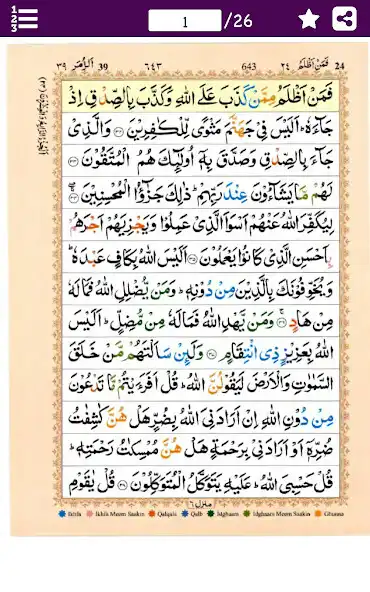 1 /26
39 اَلزُّمَر ٣٩ ٦٤٣ 643 فَمَنْ اَظْلَمُ ٢٤ 24
فَمَنْ اَظْلَمُ مِمَّنْ كَذَبَ عَلَى اللّٰهِ وَكَذَّبَ بِالصِّدْقِ اِذْ
جَآءَهٗ ؕ اَلَيْسَ فِيْ جَهَنَّمَ مَثْوًى لِّلْكٰفِرِيْنَ ۝۳۲ وَالَّذِيْ
جَآءَ بِالصِّدْقِ وَصَدَّقَ بِهٖۤ اُولٰٓئِكَ هُمُ الْمُتَّقُوْنَ ۝۳۳
لَهُمْ مَّا يَشَآءُوْنَ عِنْدَ رَبِّهِمْ ؕ ذٰلِكَ جَزٰٓؤُا الْمُحْسِنِيْنَ ۝۳۴
لِيُكَفِّرَ اللّٰهُ عَنْهُمْ اَسْوَاَ الَّذِيْ عَمِلُوْا وَيَجْزِيَهُمْ اَجْرَهُمْ
بِاَحْسَنِ الَّذِيْ كَانُوْا يَعْمَلُوْنَ ۝۳۵ اَلَيْسَ اللّٰهُ بِكَافٍ عَبْدَهٗ ؕ
وَيُخَوِّفُوْنَكَ بِالَّذِيْنَ مِنْ دُوْنِهٖ ؕ وَمَنْ يُّضْلِلِ اللّٰهُ فَمَا لَهٗ
مِنْ هَادٍ ۝۳۶ وَمَنْ يَّهْدِ اللّٰهُ فَمَا لَهٗ مِنْ مُّضِلٍّ ؕ اَلَيْسَ
اللّٰهُ بِعَزِيْزٍ ذِي انْتِقَامٍ ۝۳۷ وَلَئِنْ سَاَلْتَهُمْ مَّنْ خَلَقَ
السَّمٰوٰتِ وَالْاَرْضَ لَيَقُوْلُنَّ اللّٰهُ ؕ قُلْ اَفَرَءَيْتُمْ مَّا تَدْعُوْنَ
مِنْ دُوْنِ اللّٰهِ اِنْ اَرَادَنِيَ اللّٰهُ بِضُرٍّ هَلْ هُنَّ كٰشِفٰتُ
ضُرِّهٖۤ اَوْ اَرَادَنِيْ بِرَحْمَةٍ هَلْ هُنَّ مُمْسِكٰتُ رَحْمَتِهٖ ؕ
قُلْ حَسْبِيَ اللّٰهُ ؕ عَلَيْهِ يَتَوَكَّلُ الْمُتَوَكِّلُوْنَ ۝۳۸ قُلْ يٰقَوْمِ
منزل ٦
Ikhfa Ikhfa Meem Saakin Qalqala Qalb Idghaam Idghaam Meem Saakin Ghunna